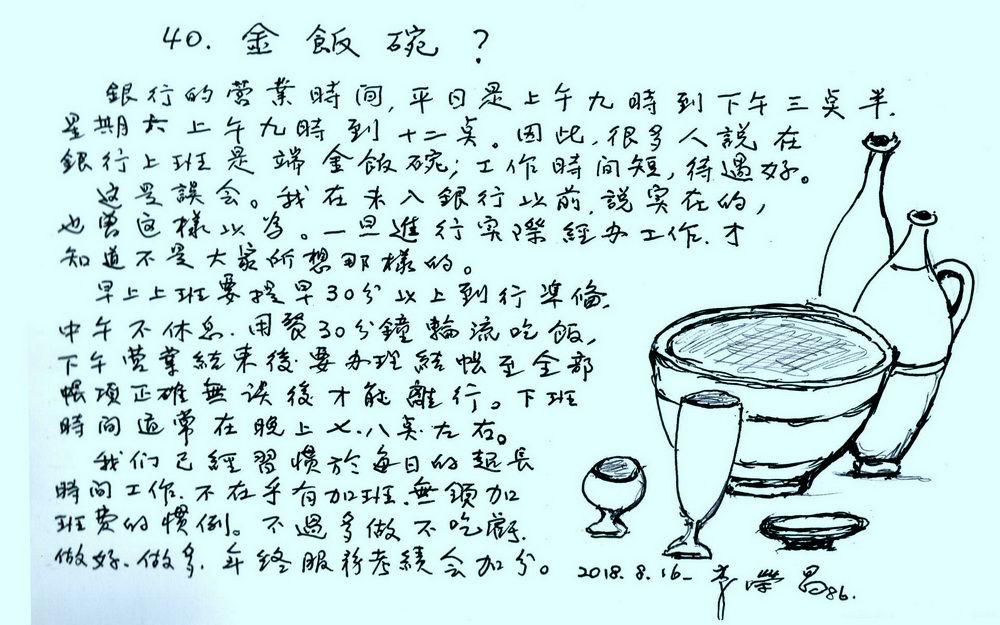 40. 金飯碗?
銀行的营業時间,平日是上午九時到下午三点半.
星期六上午九時到十二点。因此,很多人説在
銀行上班是端金飯碗;工作時间短,待遇好。
这是誤会。我在未入銀行以前,説实在的,
也曾这様以為。一旦進行实際経办工作.才
知道不是大家所想那様的。
早上上班要提早30分以上到行準俻.
中午不休息.用餐30分鐘輪流吃飯,
下午营業結束後要办理結帳至全部
帳項正確無误後才能離行。下班
時间通常在晚上七.八点左右。
我们已経習慣於每日的超長
時间工作.不在乎有加班.無領加
班费的慣例。不過多做不吃虧.
做好.做多.年終服務考績会加分。 2018.8.16- 李榮昌86.